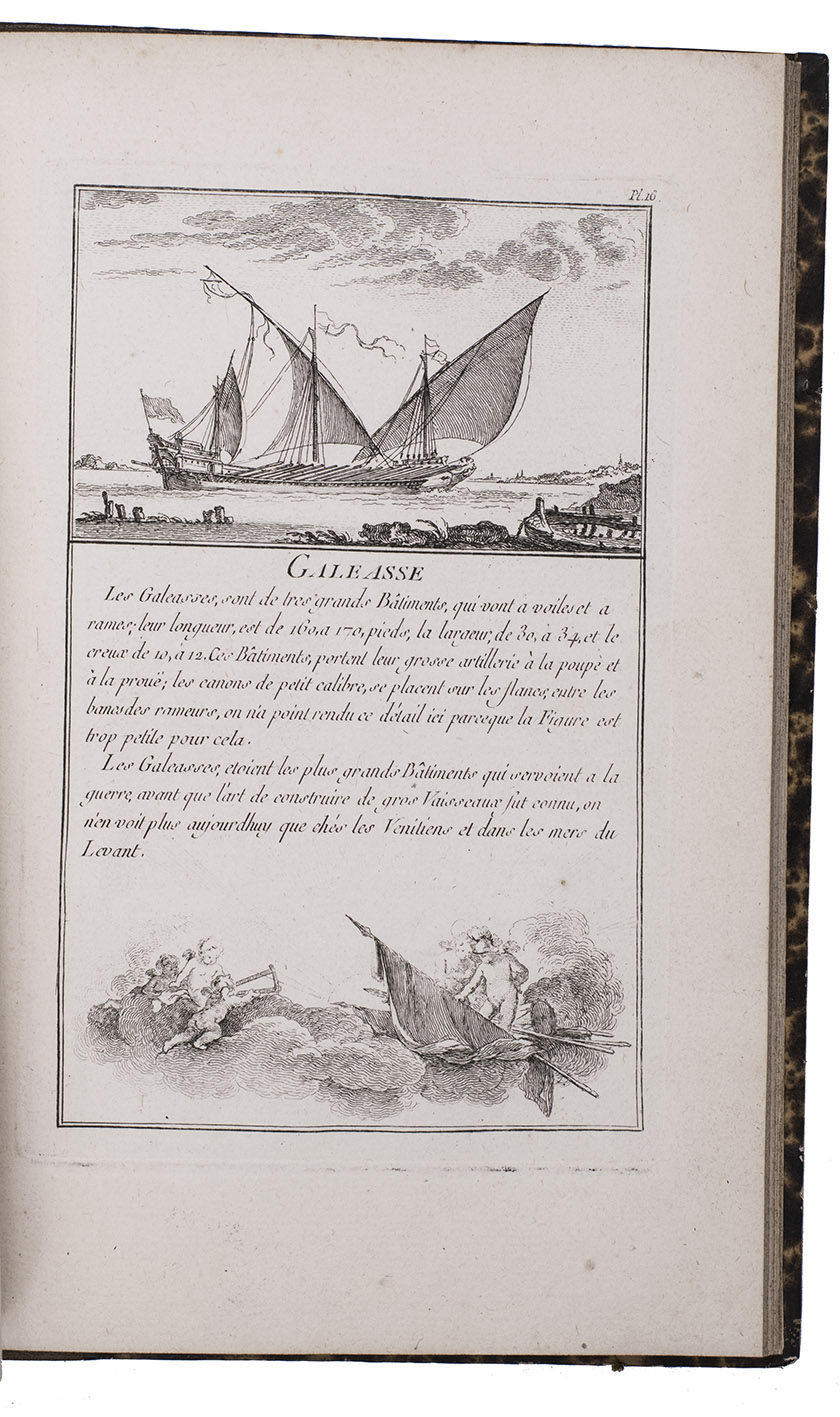 Pl. 16.
GALEASSE
Les Galeasses, sont de tres grands Bâtiments, qui vont a voiles et a
rames; leur longueur, est de 160, a 170, pieds, la largeur, de 30, à 34, et le
creux de 10, à 12. Ces Bâtiments, portent leur grosse artillerie à la poupe et
à la prouë; les canons de petit calibre, se placent sur les flancs, entre les
bancs des rameurs, on n'a point rendu ce détail ici parceque la Figure est
trop petite pour cela.
Les Galeasses, etoient les plus grands Bâtiments qui servoient a la
guerre, avant que l'art de construire de gros Vaisseaux fut connu, on
n'en voit plus aujourdhuy que chés les Venitiens et dans les mers du
Levant.